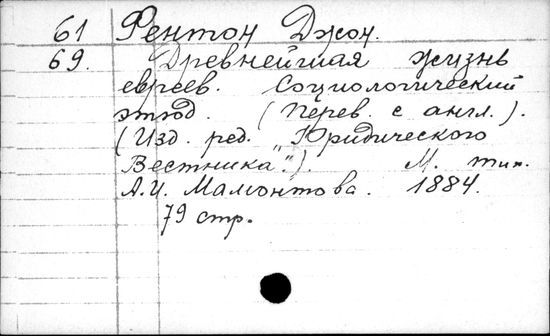 61 Фентон Джон.
69. Древнейшая жизнь
евреев. Социологический
этюд. (Перев. с англ.).
(Изд. ред. „Юридического
Вестника".). М. тип.
А.И. Мамонтова. 1884.
79 стр.